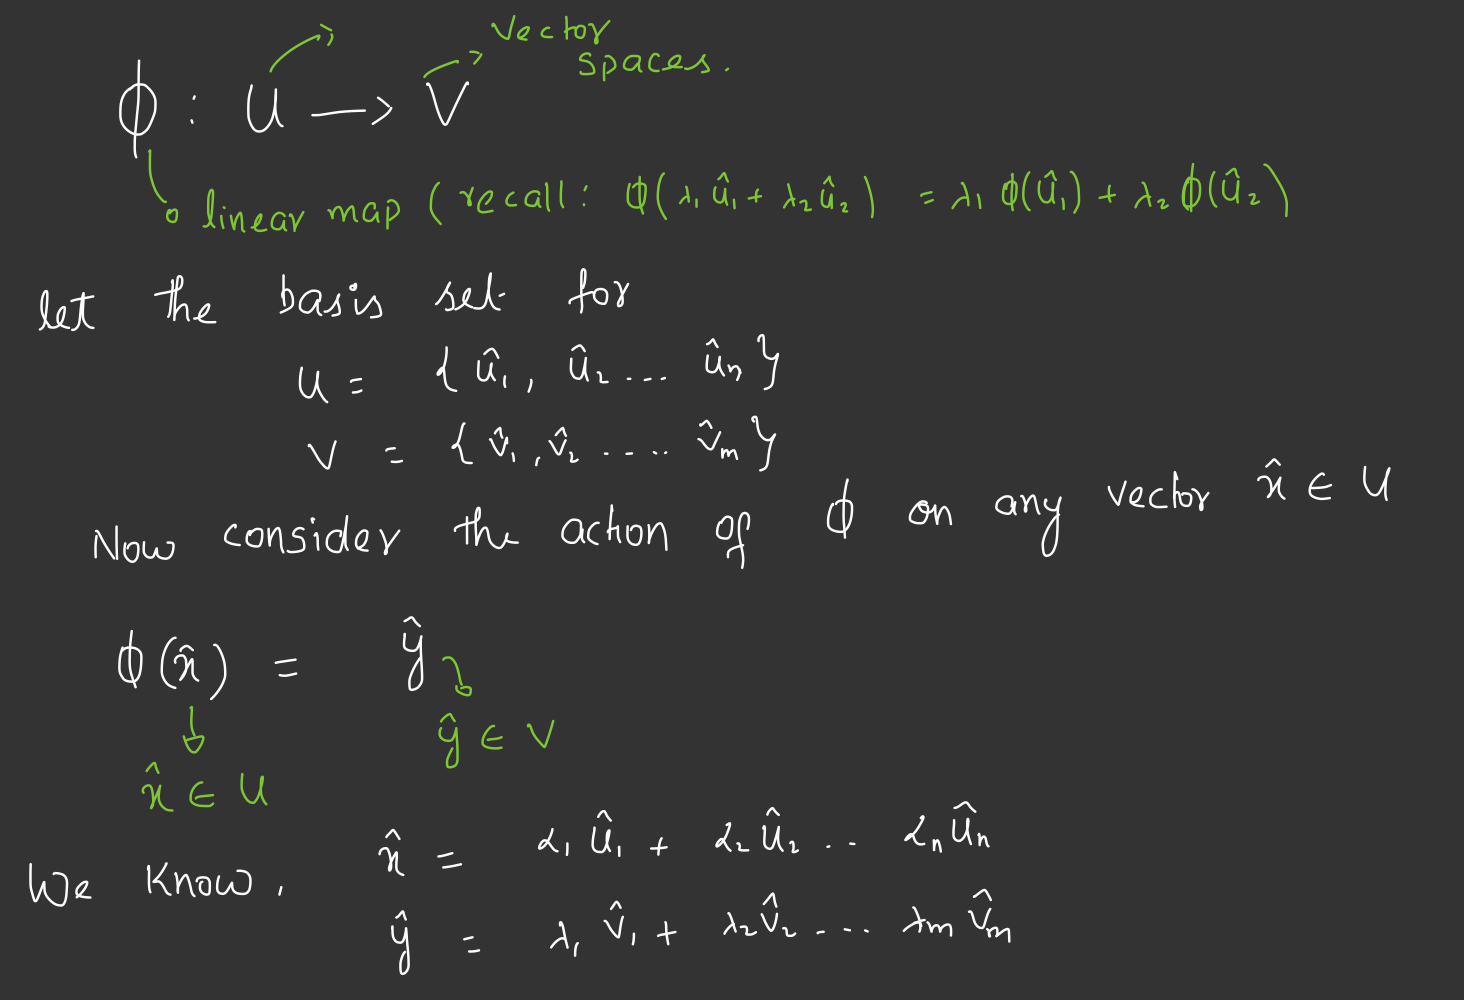 Vector
spaces.
ϕ : U → V
linear map (recall: ϕ(λ₁û₁ + λ₂û₂) = λ₁ϕ(û₁) + λ₂ϕ(û₂)
let the basis set for
U = {û₁, û₂ ... ûn}
V = {v̂₁, v̂₂ ..... v̂m}
Now consider the action of ϕ on any vector x̂ ∈ U
ϕ(x̂) = ŷ
ŷ ∈ V
x̂ ∈ U
We know, x̂ = α₁û₁ + α₂û₂ .. αnûn
ŷ = λ₁v̂₁ + λ₂v̂₂ .... λmv̂m